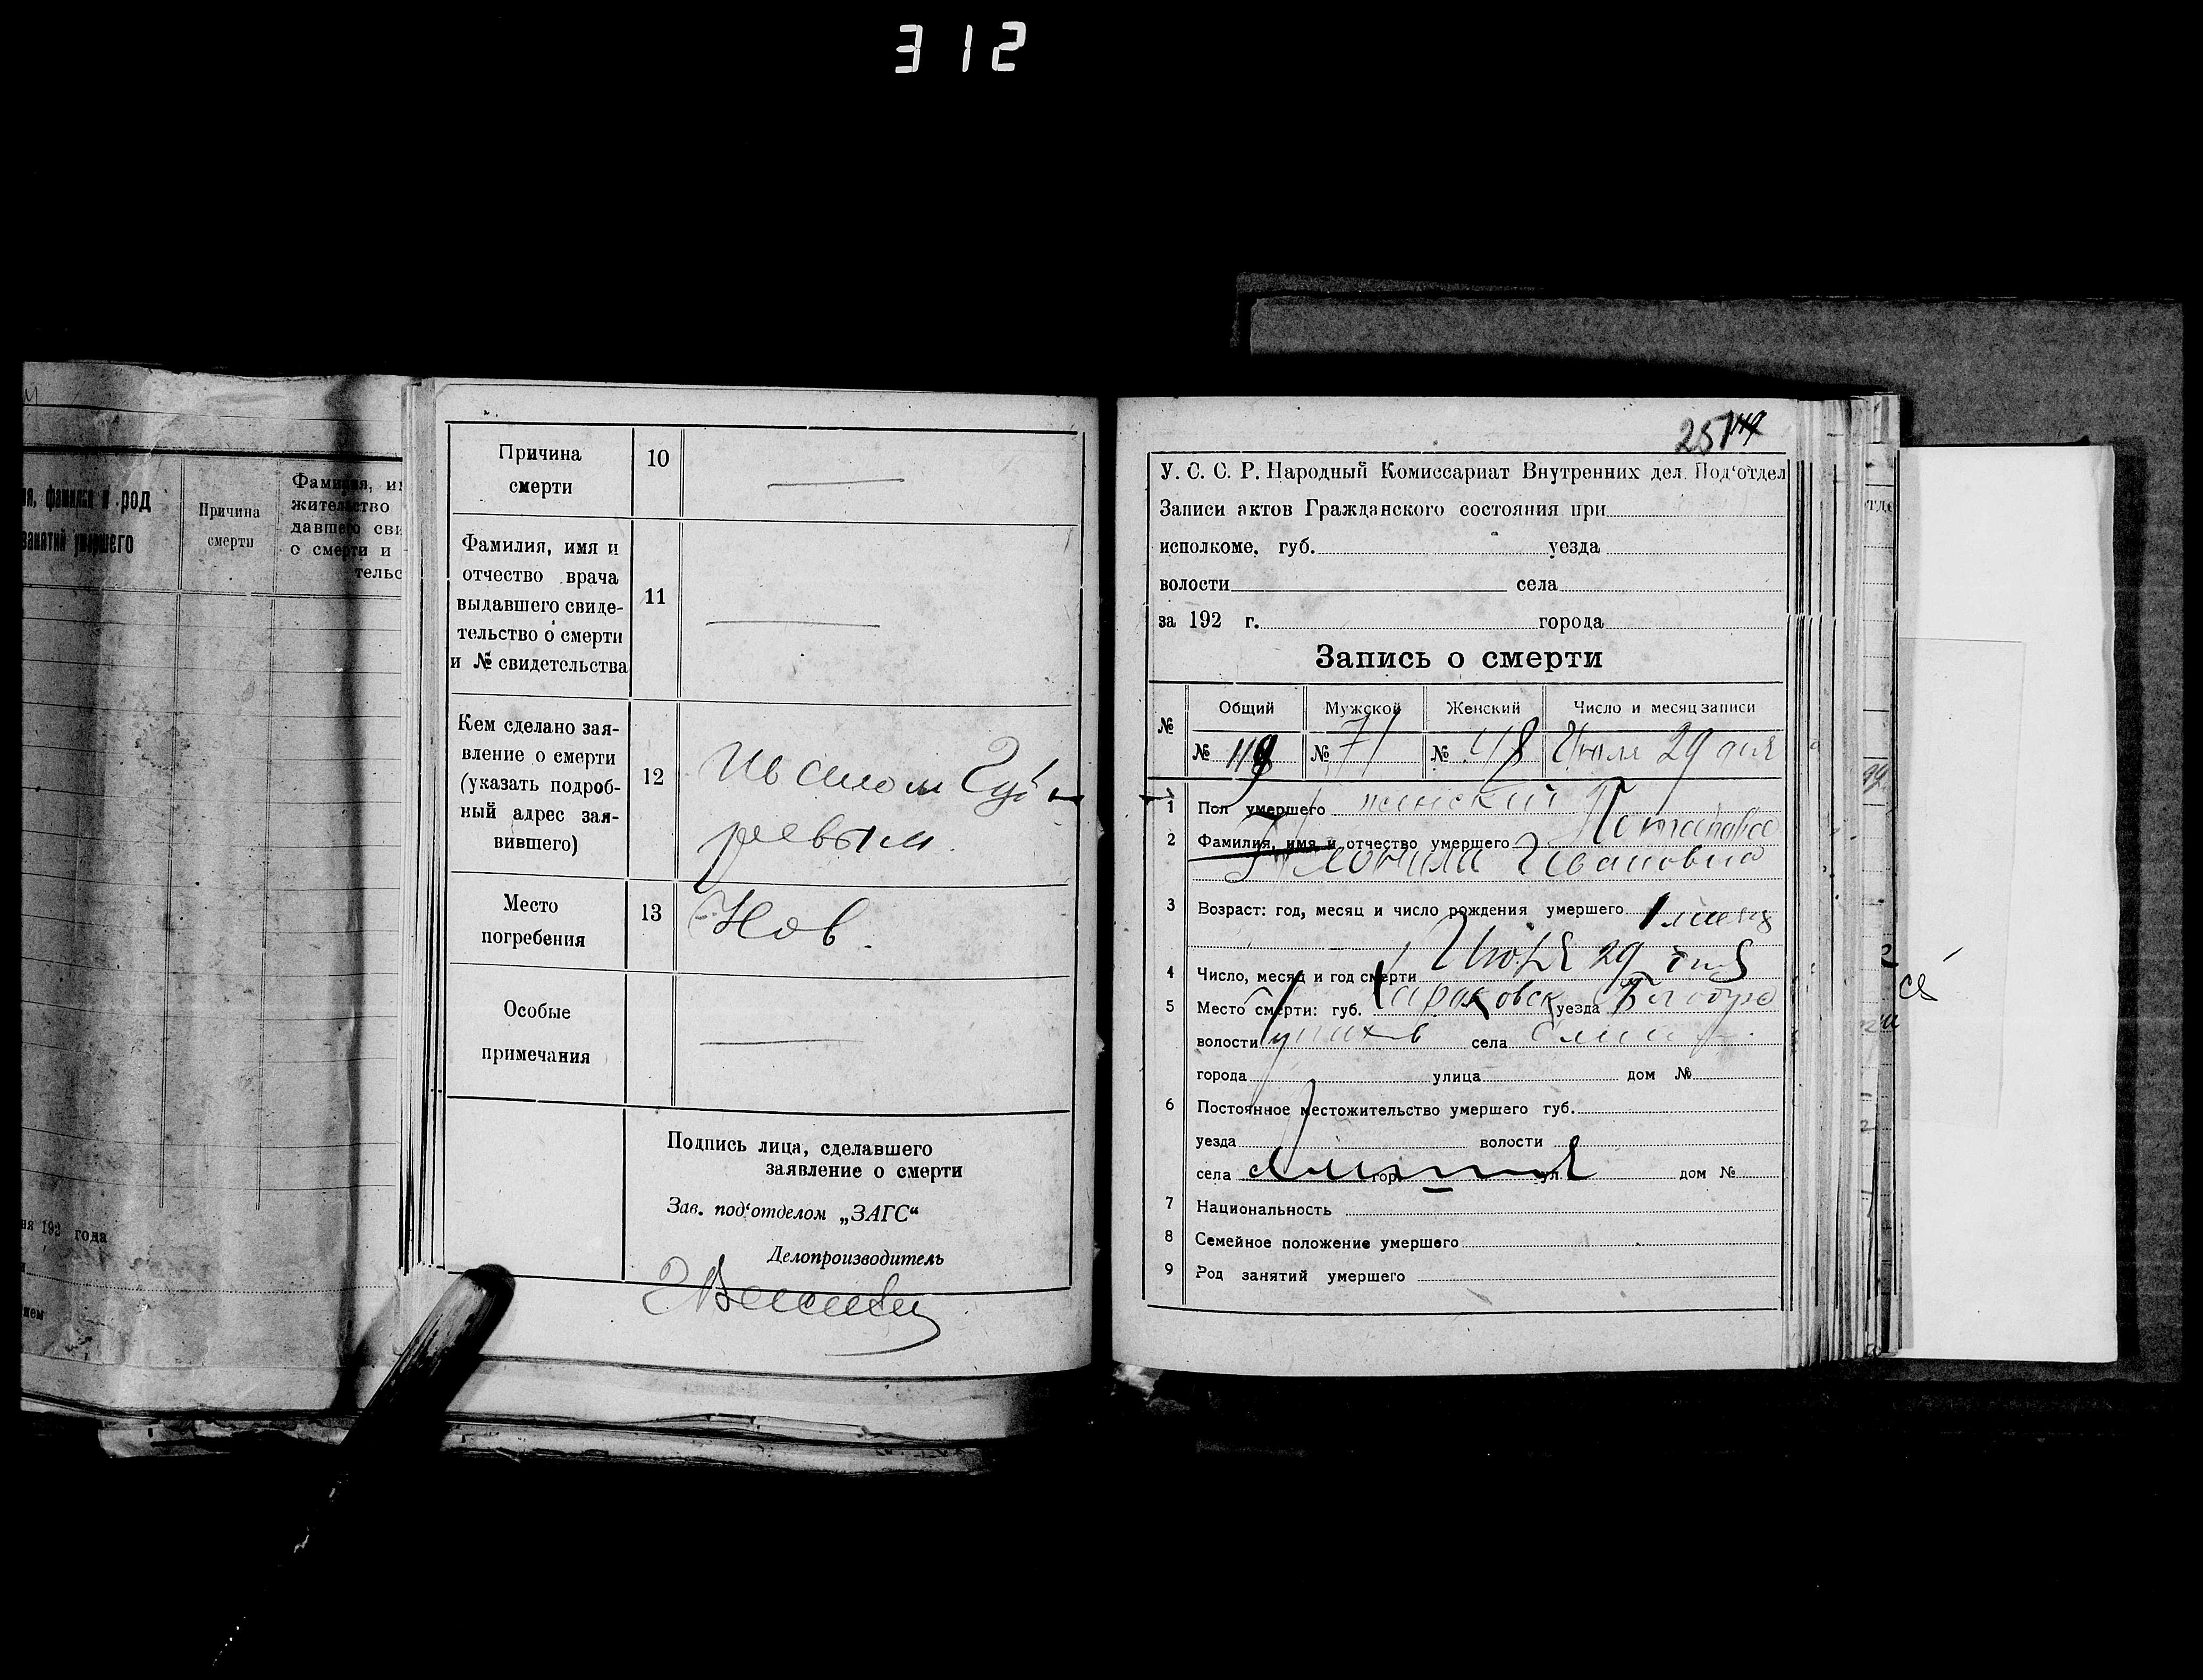 312
род
занятий умершего
Причина
смерти
Фамилия, и
жительство
давшего сви
о смерти и
тельс
192 года
Причина
смерти
10
Фамилия, имя и
отчество врача
выдавшего свиде-
тельство о смерти
и № свидетельства
11
Кем сделано зая-
вление о смерти
(указать подроб-
ный адрес зая-
вившего)
12
Место
погребения
13
Нов.
Особые
примечания
Подпись лица, сделавшего
заявление о смерти
Зав. под'отделом „ЗАГС“
Делопроизводитель
251
У. С. С. Р. Народный Комиссариат Внутренних дел. Под'отдел
Записи актов Гражданского состояния при
исполкоме, губ. уезда
волости села
за 192 г. города
Запись о смерти
№ Общий Мужской Женский Число и месяц записи
№ 119 № 71 № 48 Июля 29 дня
1 Пол умершего женский
2 Фамилия, имя и отчество умершего Потапова
Ивановна
3 Возраст: год, месяц и число рождения умершего 1 месяц
4 Число, месяц и год смерти Июля 29 дня
5 Место смерти: губ. Харьковск уезда
волости села
города улица дом №
6 Постоянное местожительство умершего губ.
уезда волости
села гор. ул. дом №
7 Национальность
8 Семейное положение умершего
9 Род занятий умершего